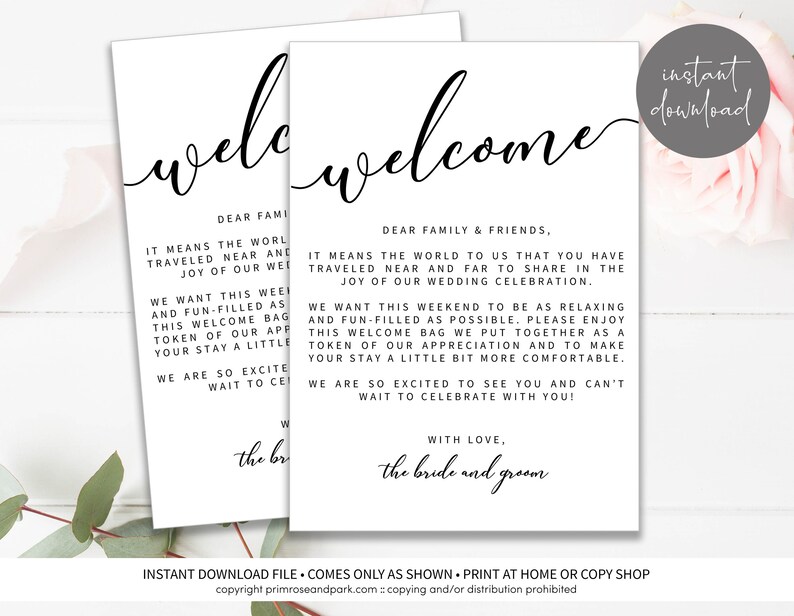 welc
DEAR FAMI
IT MEANS THE WORLD
TRAVELED NEAR AND
JOY OF OUR WED
WE WANT THIS WEEK
AND FUN-FILLED AS
THIS WELCOME BAG
TOKEN OF OUR APP
YOUR STAY A LITTLE
WE ARE SO EXCITED
WAIT TO CELEB
W
the br
welcome
DEAR FAMILY & FRIENDS,
IT MEANS THE WORLD TO US THAT YOU HAVE
TRAVELED NEAR AND FAR TO SHARE IN THE
JOY OF OUR WEDDING CELEBRATION.
WE WANT THIS WEEKEND TO BE AS RELAXING
AND FUN-FILLED AS POSSIBLE. PLEASE ENJOY
THIS WELCOME BAG WE PUT TOGETHER AS A
TOKEN OF OUR APPRECIATION AND TO MAKE
YOUR STAY A LITTLE BIT MORE COMFORTABLE.
WE ARE SO EXCITED TO SEE YOU AND CAN'T
WAIT TO CELEBRATE WITH YOU!
WITH LOVE,
the bride and groom
instant
download
INSTANT DOWNLOAD FILE • COMES ONLY AS SHOWN • PRINT AT HOME OR COPY SHOP
copyright primroseandpark.com :: copying and/or distribution prohibited